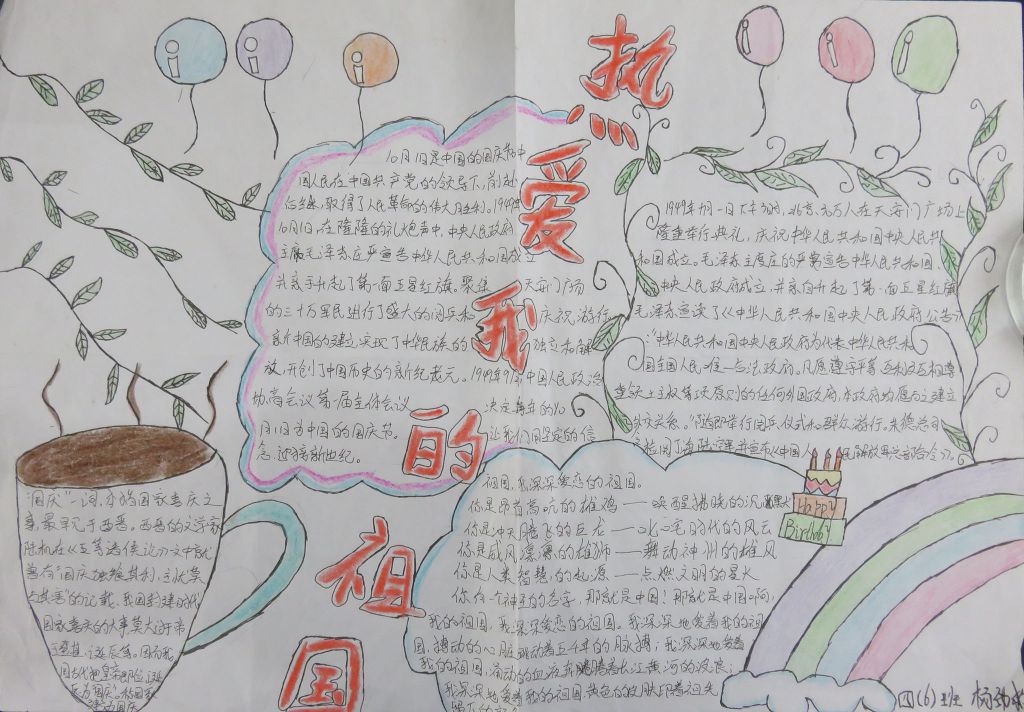 热爱我的祖国
10月1日是中国的国庆节中
国人民在中国共产党的领导下,前赴
后继,取得了人民革命的伟大胜利。1949年
10月1日,在隆隆的礼炮声中,中央人民政府
主席毛泽东庄严宣告中华人民共和国成立
并亲手升起了第一面五星红旗。聚 天安门广场
的三十万军民进行了盛大的阅兵和 庆祝游行
新中国的建立,实现了中华民族的 独立和解
放,开创了中国历史的新纪元。1949年 中国人民政治
协商会议第一届全体会议 决定每年的10
月1日为中国的国庆节。 让我们用坚定的信
念,迎接新世纪。
1949年十月一日下午3时,北京
万人在天安门广场上
隆重举行典礼,庆祝中华人民共和国中央人民
和国成立。毛泽东主席庄的严肃宣告中华人民共和国、
中央人民政府成立,并亲自升起了第一面五星红旗
毛泽东宣读了《中华人民共和国中央人民政府公告
:"中华人民共和国中央人民政府为代表中华人民共和
国全国人民唯一合法政府。凡愿遵守平等、互利及互相尊
重领土主权等项原则的任何外国政府,本政府均愿与之建立
外交关系。"随即举行阅兵仪式和群众游行。朱德总司
"国庆"一词,本指国家喜庆之
事,最早见于西晋。西晋的文学家
陆机在《五等诸侯论》一文中就
曾有"国庆独飨其利,主忧莫
与其害"的记载、我国封建时代
国家喜庆的大事莫大过于帝
王登基、诞辰等。因而我
国古代把皇帝即位、诞
辰为"国庆"。
祖国,我深深爱恋的祖国。
你是昂首高吭的雄鸡——唤醒拂晓的沉默
你是冲天腾飞的巨龙——叱咤时代的风云
你是威风凛凛的雄狮——舞动神州的雄风
你是人类智慧的起源——点燃文明的星火
你有一个神圣的名字,那就是中国!那就是中国啊,
我的祖国。我深深爱恋的祖国。我深深地爱着我的祖
国,搏动的心脏跳动着五千年的脉搏,我深深地爱着
我的祖国,涌动的血液奔腾着长江黄河的波浪;
我深深地爱着我的祖国,黄色的皮肤印着祖先
Happy
Birthday
四(6)班 杨